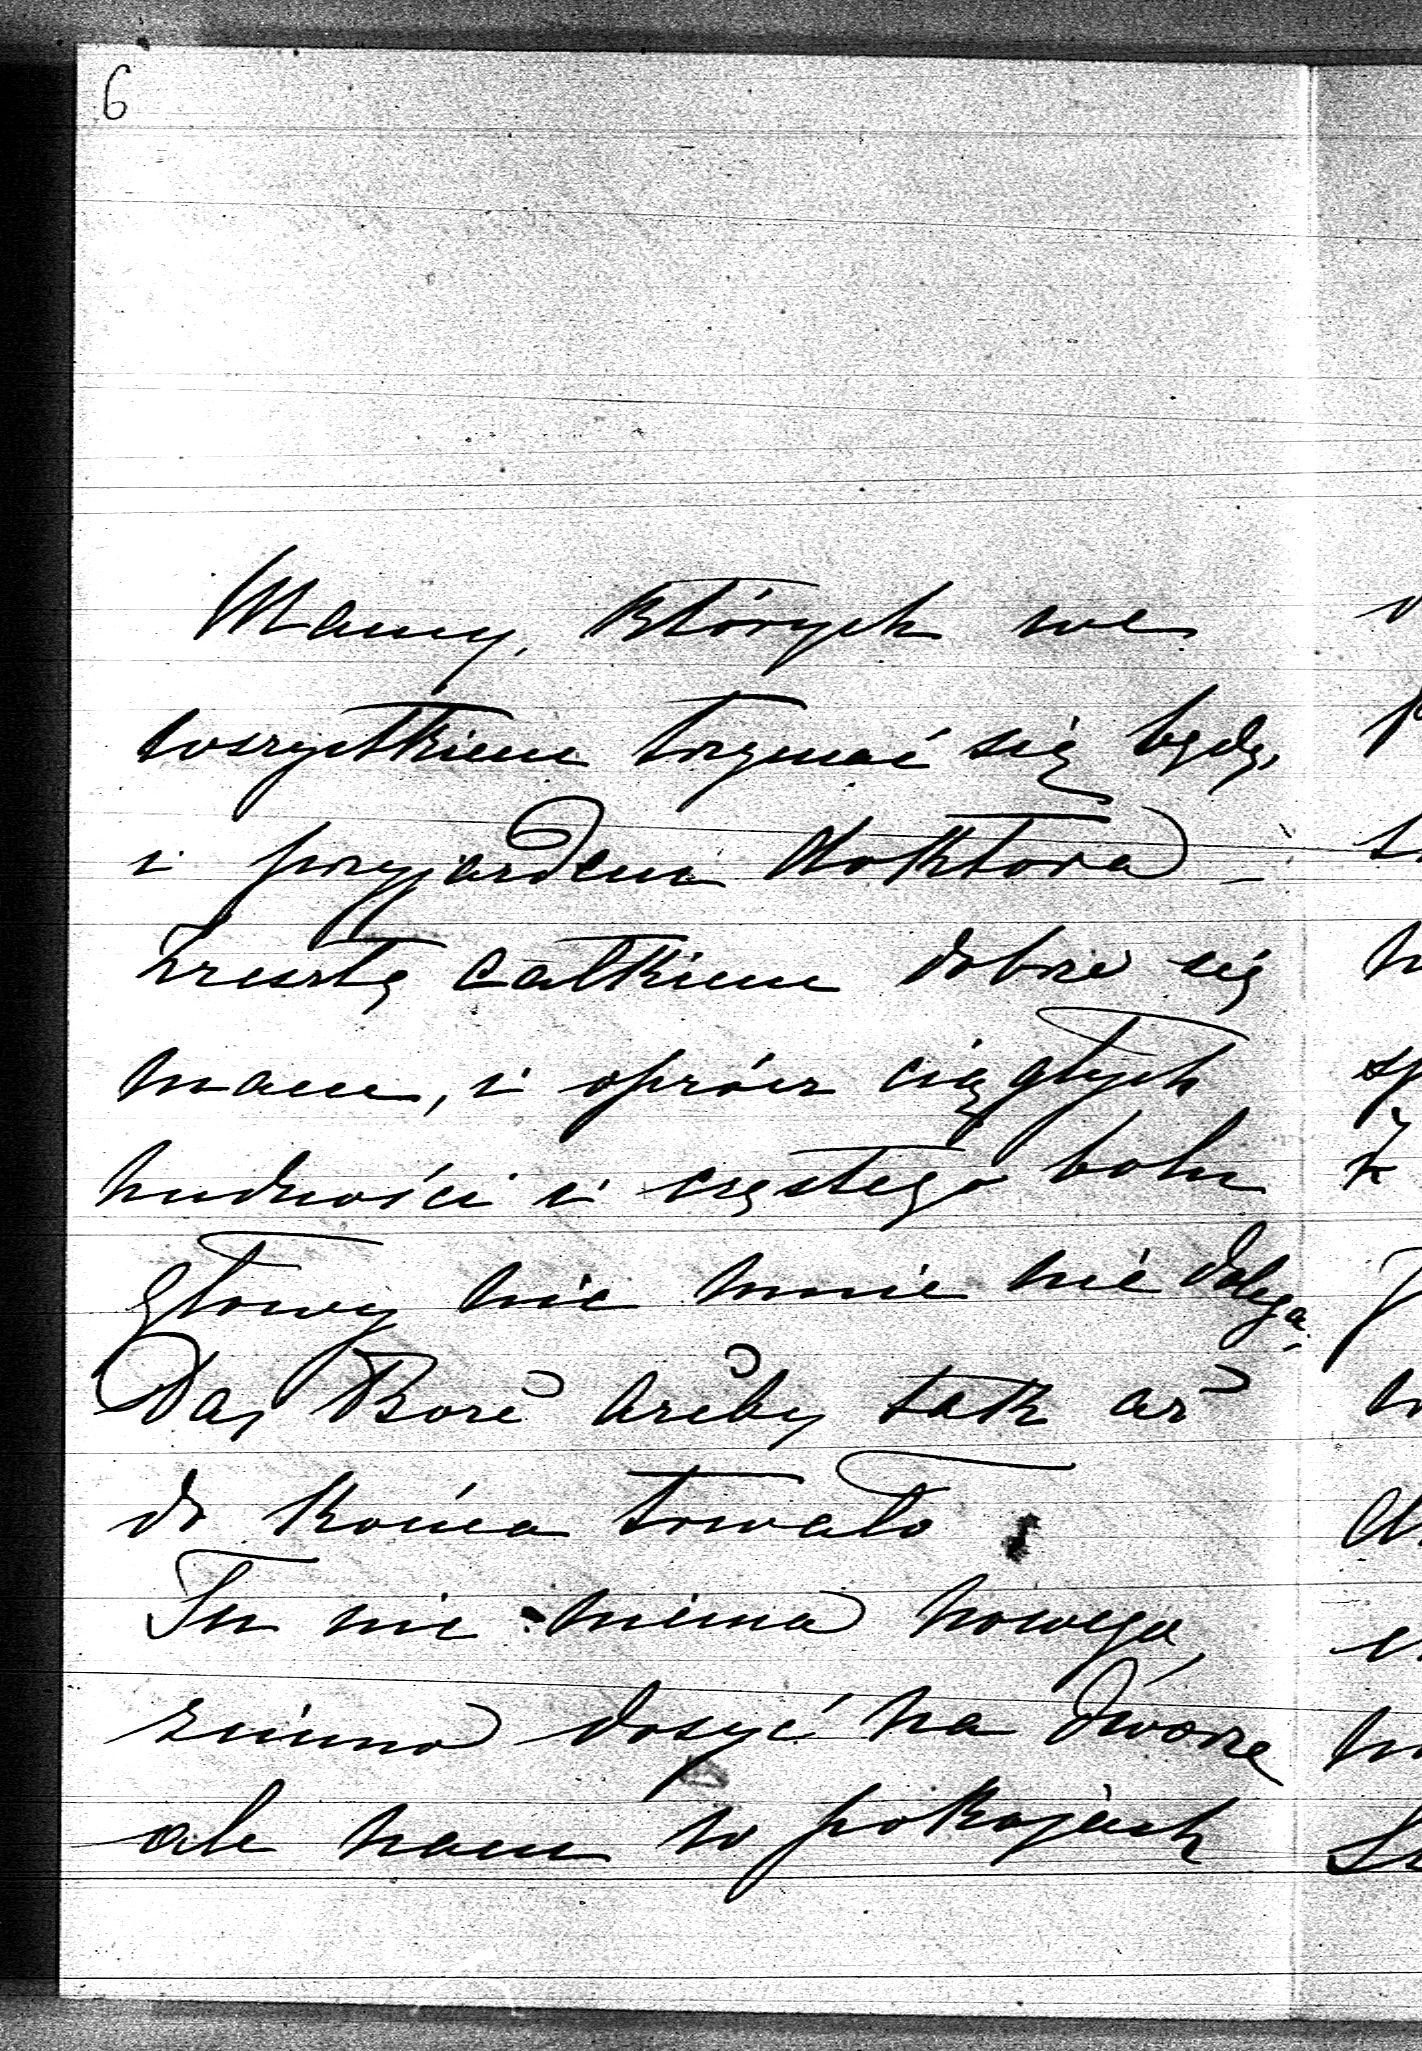 6
Mamy, których we
wszystkiem trzymać się będę,
i przyjazdem doktora –
Zresztą całkiem dobrze się
mam, i oprócz ciągłych
nudności i częstego bolu
głowy nic mnie nie dolega.
Daj Boże żeby tak aż
do końca trwało
Tu nic niema nowego,
zimno dosyć na dworze
ale nam w pokojach